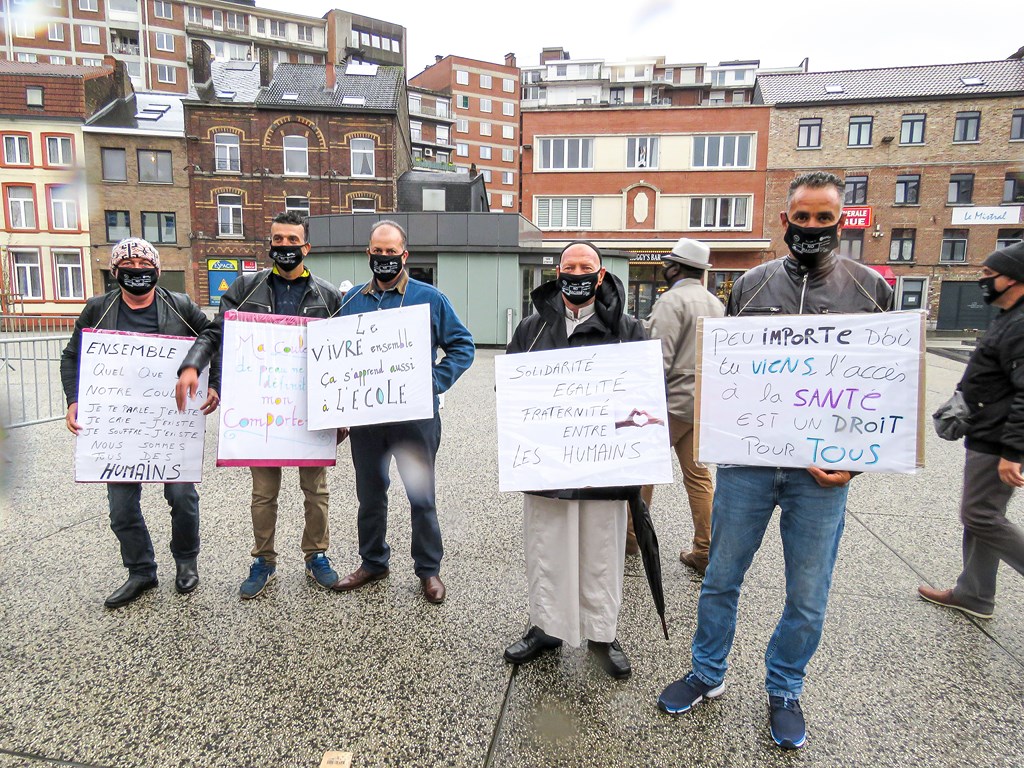 ENSEMBLE
QUEL QUE
NOTRE COULEUR
JE TE PARLE - J'EXISTE
JE CRIE - J'EXISTE
JE SOUFFRE - J'EXISTE
NOUS SOMMES
TOUS DES
HUMAINS
Ma coule
de peau ne
définit
mon
Comporte
Le
VIVRE ensemble
ça s'apprend aussi
à L'ECOLE
SOLIDARITÉ
EGALITÉ
FRATERNITÉ
ENTRE
LES HUMAINS
PEU IMPORTE D'OÙ
tu VIENS, l'accès
à la SANTE
EST UN DROIT
POUR TOUS
Le Mistral